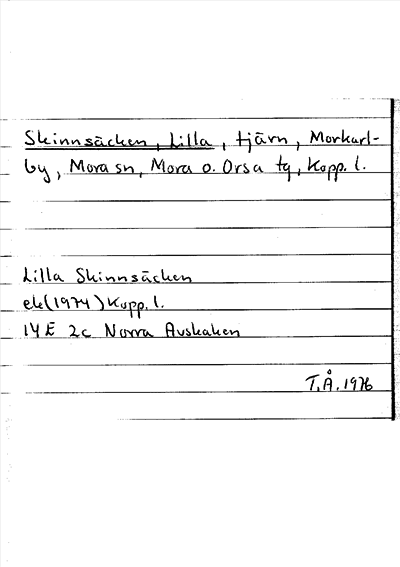 Skinnsäcken, Lilla, tjärn, Morkarl-
by, Mora sn, Mora o. Orsa tg, Kopp. l.
Lilla Skinnsäcken
ek(1974) Kopp. l.
14E 2c Norra Avskaken
T.Å. 1976